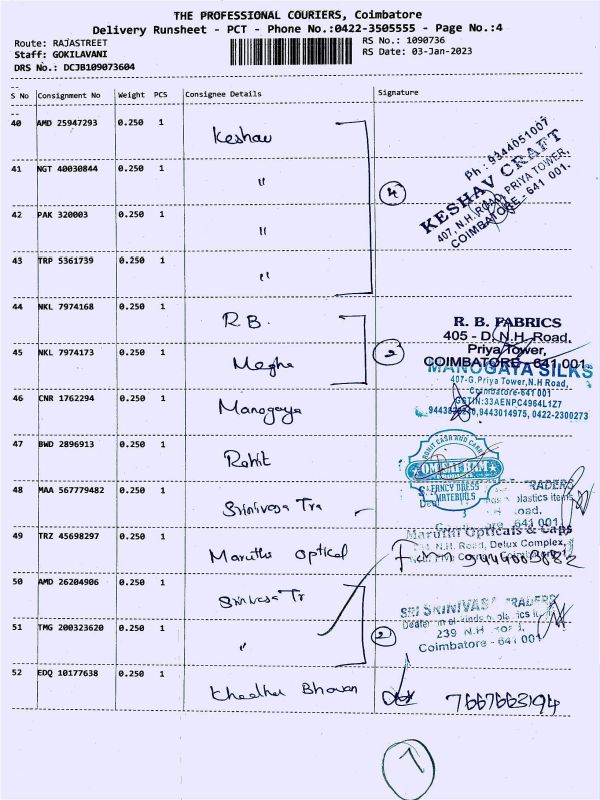 THE PROFESSIONAL COURIERS, Coimbatore
Delivery Runsheet - PCT - Phone No.:0422-3505555 - Page No.:4
Route: RAJASTREET
RS No.: 1090736
Staff: GOKILAVANI
RS Date: 03-Jan-2023
DRS No.: DCJB109073604
S No Consignment No Weight PCS Consignee Details Signature
40 AMD 25947293 0.250 1 Keshav
41 NGT 40030844 0.250 1 "
42 PAK 320003 0.250 1 "
43 TRP 5361739 0.250 1 "
4
Ph : 9344051007
KESHAV CRAFT
407, N.H. ROAD, PRIYA TOWER,
COIMBATORE - 641 001.
44 NKL 7974168 0.250 1 R.B.
45 NKL 7974173 0.250 1 Megha
2
R. B. FABRICS
405 - D, N.H. Road,
Priya Tower,
COIMBATORE - 641 001
46 CNR 1762294 0.250 1 Manogaya
MANOGATA SILKS
407-G, Priya Tower, N.H Road,
Coimbatore-641 001
GSTIN:33AENPC4964L1Z7
9443014975, 0422-2300273
47 BWD 2896913 0.250 1 Rohit
ROHIT CASH AND CARRY
OM SAI RAM
FANCY DRESS
MATERIALS
48 MAA 567779482 0.250 1 Srinivosa Tra
TRADERS
plastics items
Road,
641 001
49 TRZ 45698297 0.250 1 Maruthi optical
Maruthi Opticals & Caps
N.H. Road, Delux Complex,
50 AMD 26204906 0.250 1 Srinivasa Tr
51 TMG 200323620 0.250 1 "
2
SRI SRINIVASA TRADERS
Dealer in all kinds of plastics
239 N.H. Road,
Coimbatore - 641 001
52 EDQ 10177638 0.250 1 Bhavan
7667663194
7